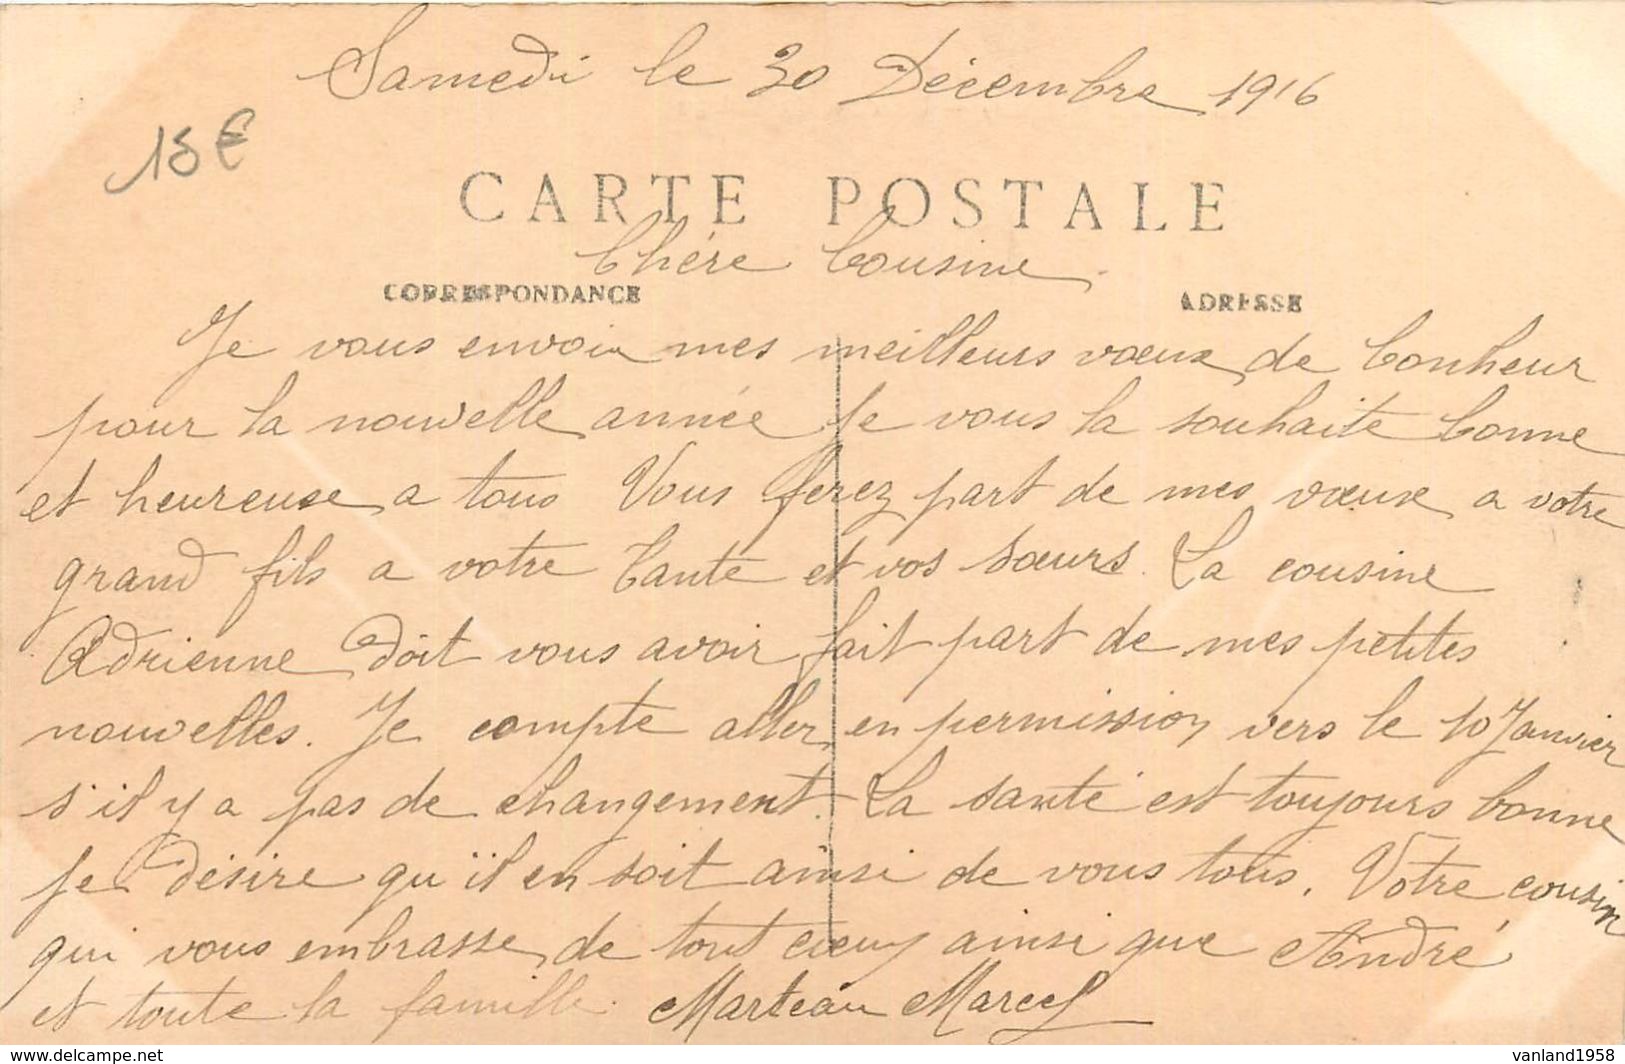 Samedi le 30 Décembre 1916
15€
CARTE POSTALE
Chére Cousine
CORRESPONDANCE
ADRESSE
Je vous envoie mes meilleurs vœux de bonheur
pour la nouvelle année je vous la souhaite bonne
et heureuse a tous Vous ferez part de mes vœux a votre
grand fils a votre tante et vos sœurs. La cousine
Adrienne doit vous avoir fait part de mes petites
nouvelles. Je compte aller en permission vers le 10 Janvier
s'il y a pas de changement. La santé est toujours bonne
je désire qu'il en soit ainsi de vous tous. Votre cousin
qui vous embrasse de tout cœur ainsi que André
et toute la famille. Marteau Marcel
www.delcampe.net
vanland1958